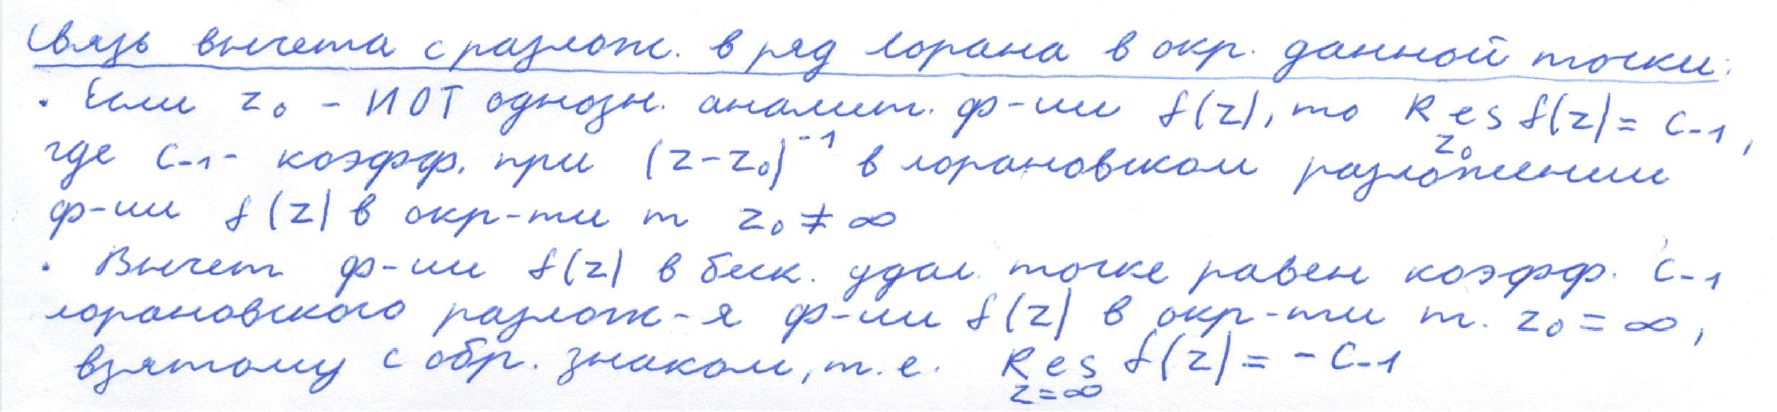 Связь вычета с разлож. в ряд Лорана в окр. данной точки:
· Если z₀ - ИОТ однозн. аналит. ф-ии f(z), то Res f(z) = C₋₁,
z₀
где C₋₁ - коэфф. при (z-z₀)⁻¹ в лорановском разложении
ф-ии f(z) в окр-ти т z₀ ≠ ∞
· Вычет ф-ии f(z) в беск. удал. точке равен коэфф. C₋₁
лорановского разлож-я ф-ии f(z) в окр-ти т. z₀ = ∞,
взятому с обр. знаком, т.е. Res f(z) = -C₋₁
z=∞